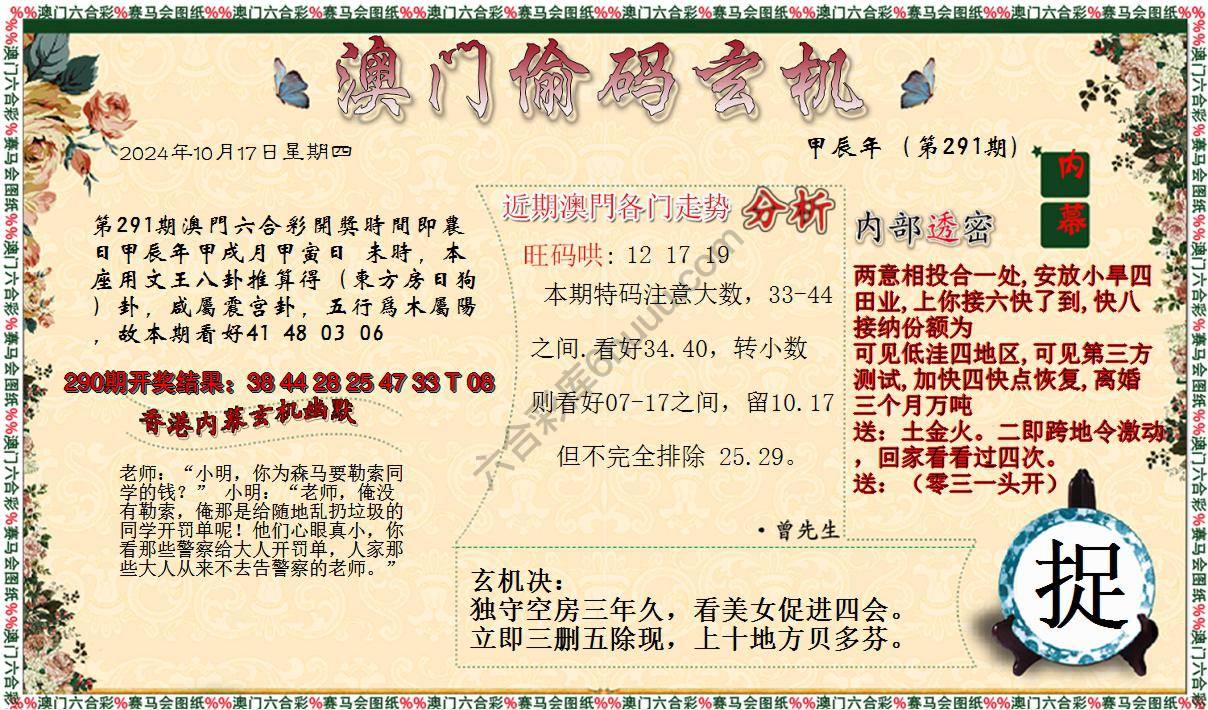 %%澳门六合彩%赛马会图纸%%澳门六合彩%赛马会图纸%%澳门六合彩%赛马会图纸%%澳门六合彩%赛马会图纸%%澳门六合彩%赛马会图纸%%澳门六合彩%赛马会图纸%%
澳门偷码玄机
2024年10月17日星期四
甲辰年（第291期）
内
幕
第291期澳門六合彩開獎時間即農
日甲辰年甲戌月甲寅日 未時，本
座用文王八卦推算得（東方房日狗
）卦，咸屬震宫卦，五行爲木屬陽
，故本期看好41 48 03 06
290期开奖结果：38 44 28 25 47 33 T 08
香港内幕玄机幽默
老师：“小明，你为森马要勒索同
学的钱？” 小明：“老师，俺没
有勒索，俺那是给随地乱扔垃圾的
同学开罚单呢！他们心眼真小，你
看那些警察给大人开罚单，人家那
些大人从来不去告警察的老师。”
近期澳門各门走势 分析
旺码哄：12 17 19
本期特码注意大数，33-44
之间.看好34.40，转小数
则看好07-17之间，留10.17
但不完全排除 25.29。
·曾先生
内部透密
两意相投合一处,安放小旱四
田业,上你接六快了到,快八
接纳份额为
可见低洼四地区,可见第三方
测试,加快四快点恢复,离婚
三个月万吨
送：土金火。二即跨地令激动
，回家看看过四次。
送：（零三一头开）
玄机决：
独守空房三年久，看美女促进四会。
立即三删五除现，上十地方贝多芬。
捉
%%澳门六合彩%赛马会图纸%%澳门六合彩%赛马会图纸%%澳门六合彩%赛马会图纸%%澳门六合彩%赛马会图纸%%澳门六合彩%赛马会图纸%%澳门六合彩%赛马会图纸%%